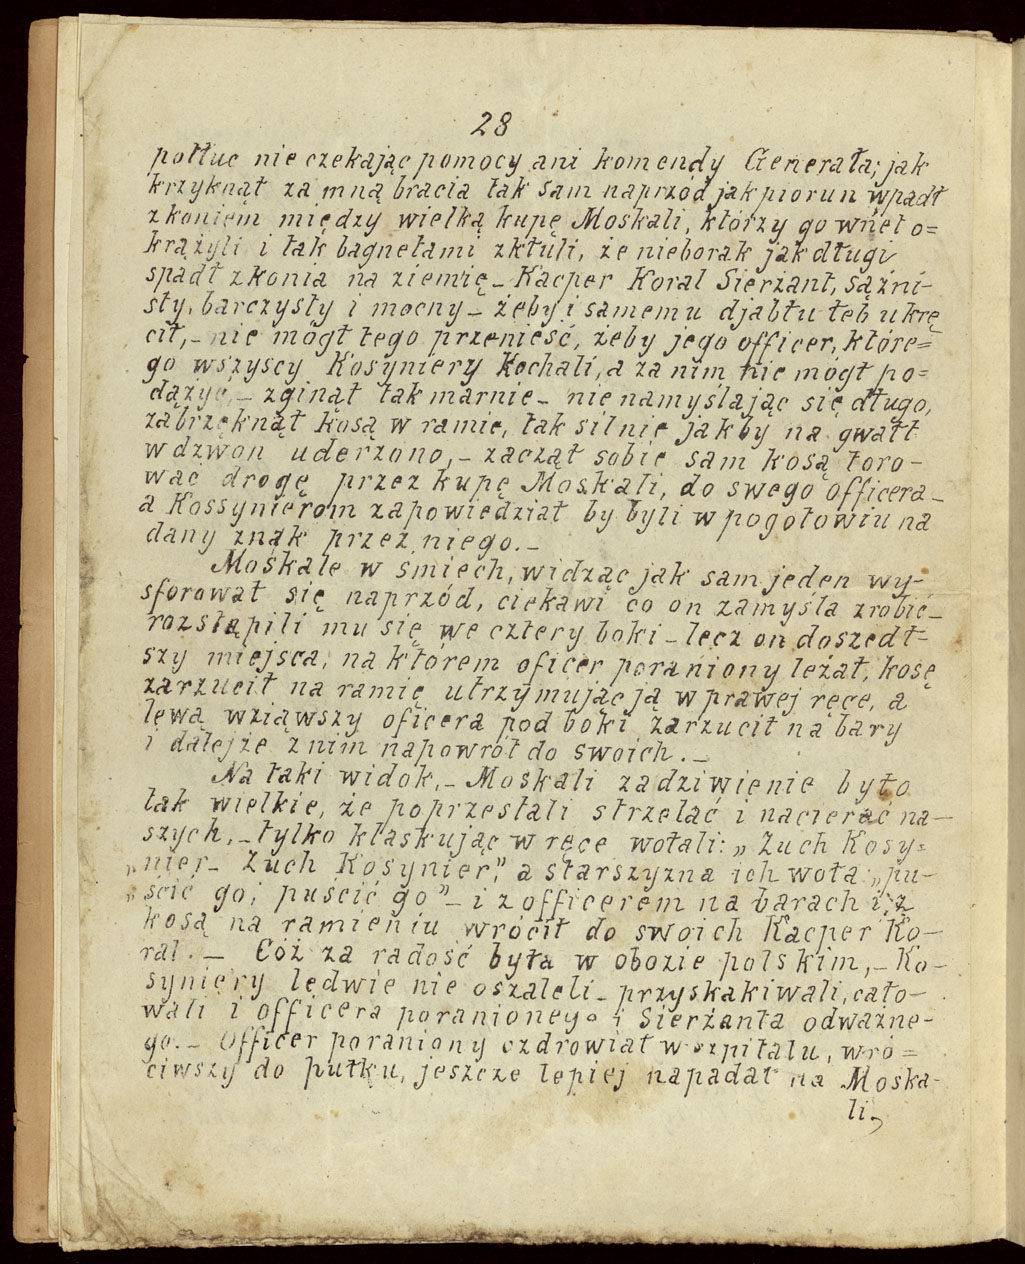 28
potłuc nie czekając pomocy ani komendy Generała; jak
krzyknął za mną bracia tak sam naprzód jak piorun wpadł
z koniem między wielką kupę Moskali, którzy go wnet o=
krążyli i tak bagnetami zkłuli, że nieborak jak długi
spadł z konia na ziemię_ Kacper Koral Sierżant, sążni-
sty, barczysty i mocny_ żeby i samemu djabłu łeb ukrę
cił,_ nie mógł tego przenieść, żeby jego officer, które=
go wszyscy Kosyniery kochali, a za nim nie mógł po=
dążyć,_ zginął tak marnie_ nie namyślając się długo,
zabrzęknął kosą w ramie, tak silnie jakby na gwałt
w dzwon uderzono,_ zaczął sobie sam kosą toro-
wać drogę przez kupę Moskali, do swego officera_
a Kossynierom zapowiedział by byli w pogotowiu na
dany znak przez niego._
Moskale w smiech, widząc jak sam jeden wy-
sforował się naprzód, ciekawi co on zamyśla zrobić_
rozstąpili mu się we cztery boki_ lecz on doszedł-
szy miejsca, na którem oficer poraniony leżał, kosę
zarzucił na ramię utrzymując ją w prawej ręce, a
lewą wziąwszy oficera pod boki zarzucił na bary
i dalejże z nim napowrót do swoich._
Na taki widok,_ Moskali zadziwienie było
tak wielkie, że poprzestali strzelać i nacierać na-
szych,_ tylko klaskując w ręce wołali: „Zuch Kosy=
„nier_ Zuch Kosynier," a starszyzna ich woła: „pu-
„ścić go; puścić go"_ i z officerem na barach i z
kosą na ramieniu wrócił do swoich Kacper Ko-
ral._ Cóż za radość była w obozie polskim,_ Ko-
syniery ledwie nie oszaleli_ przyskakiwali, cało-
wali i officera poranionego i Sierżanta odważne-
go._ Officer poraniony ozdrowiał w szpitalu, wró=
ciwszy do pułku, jeszcze lepiej napadał na Moska-
li,